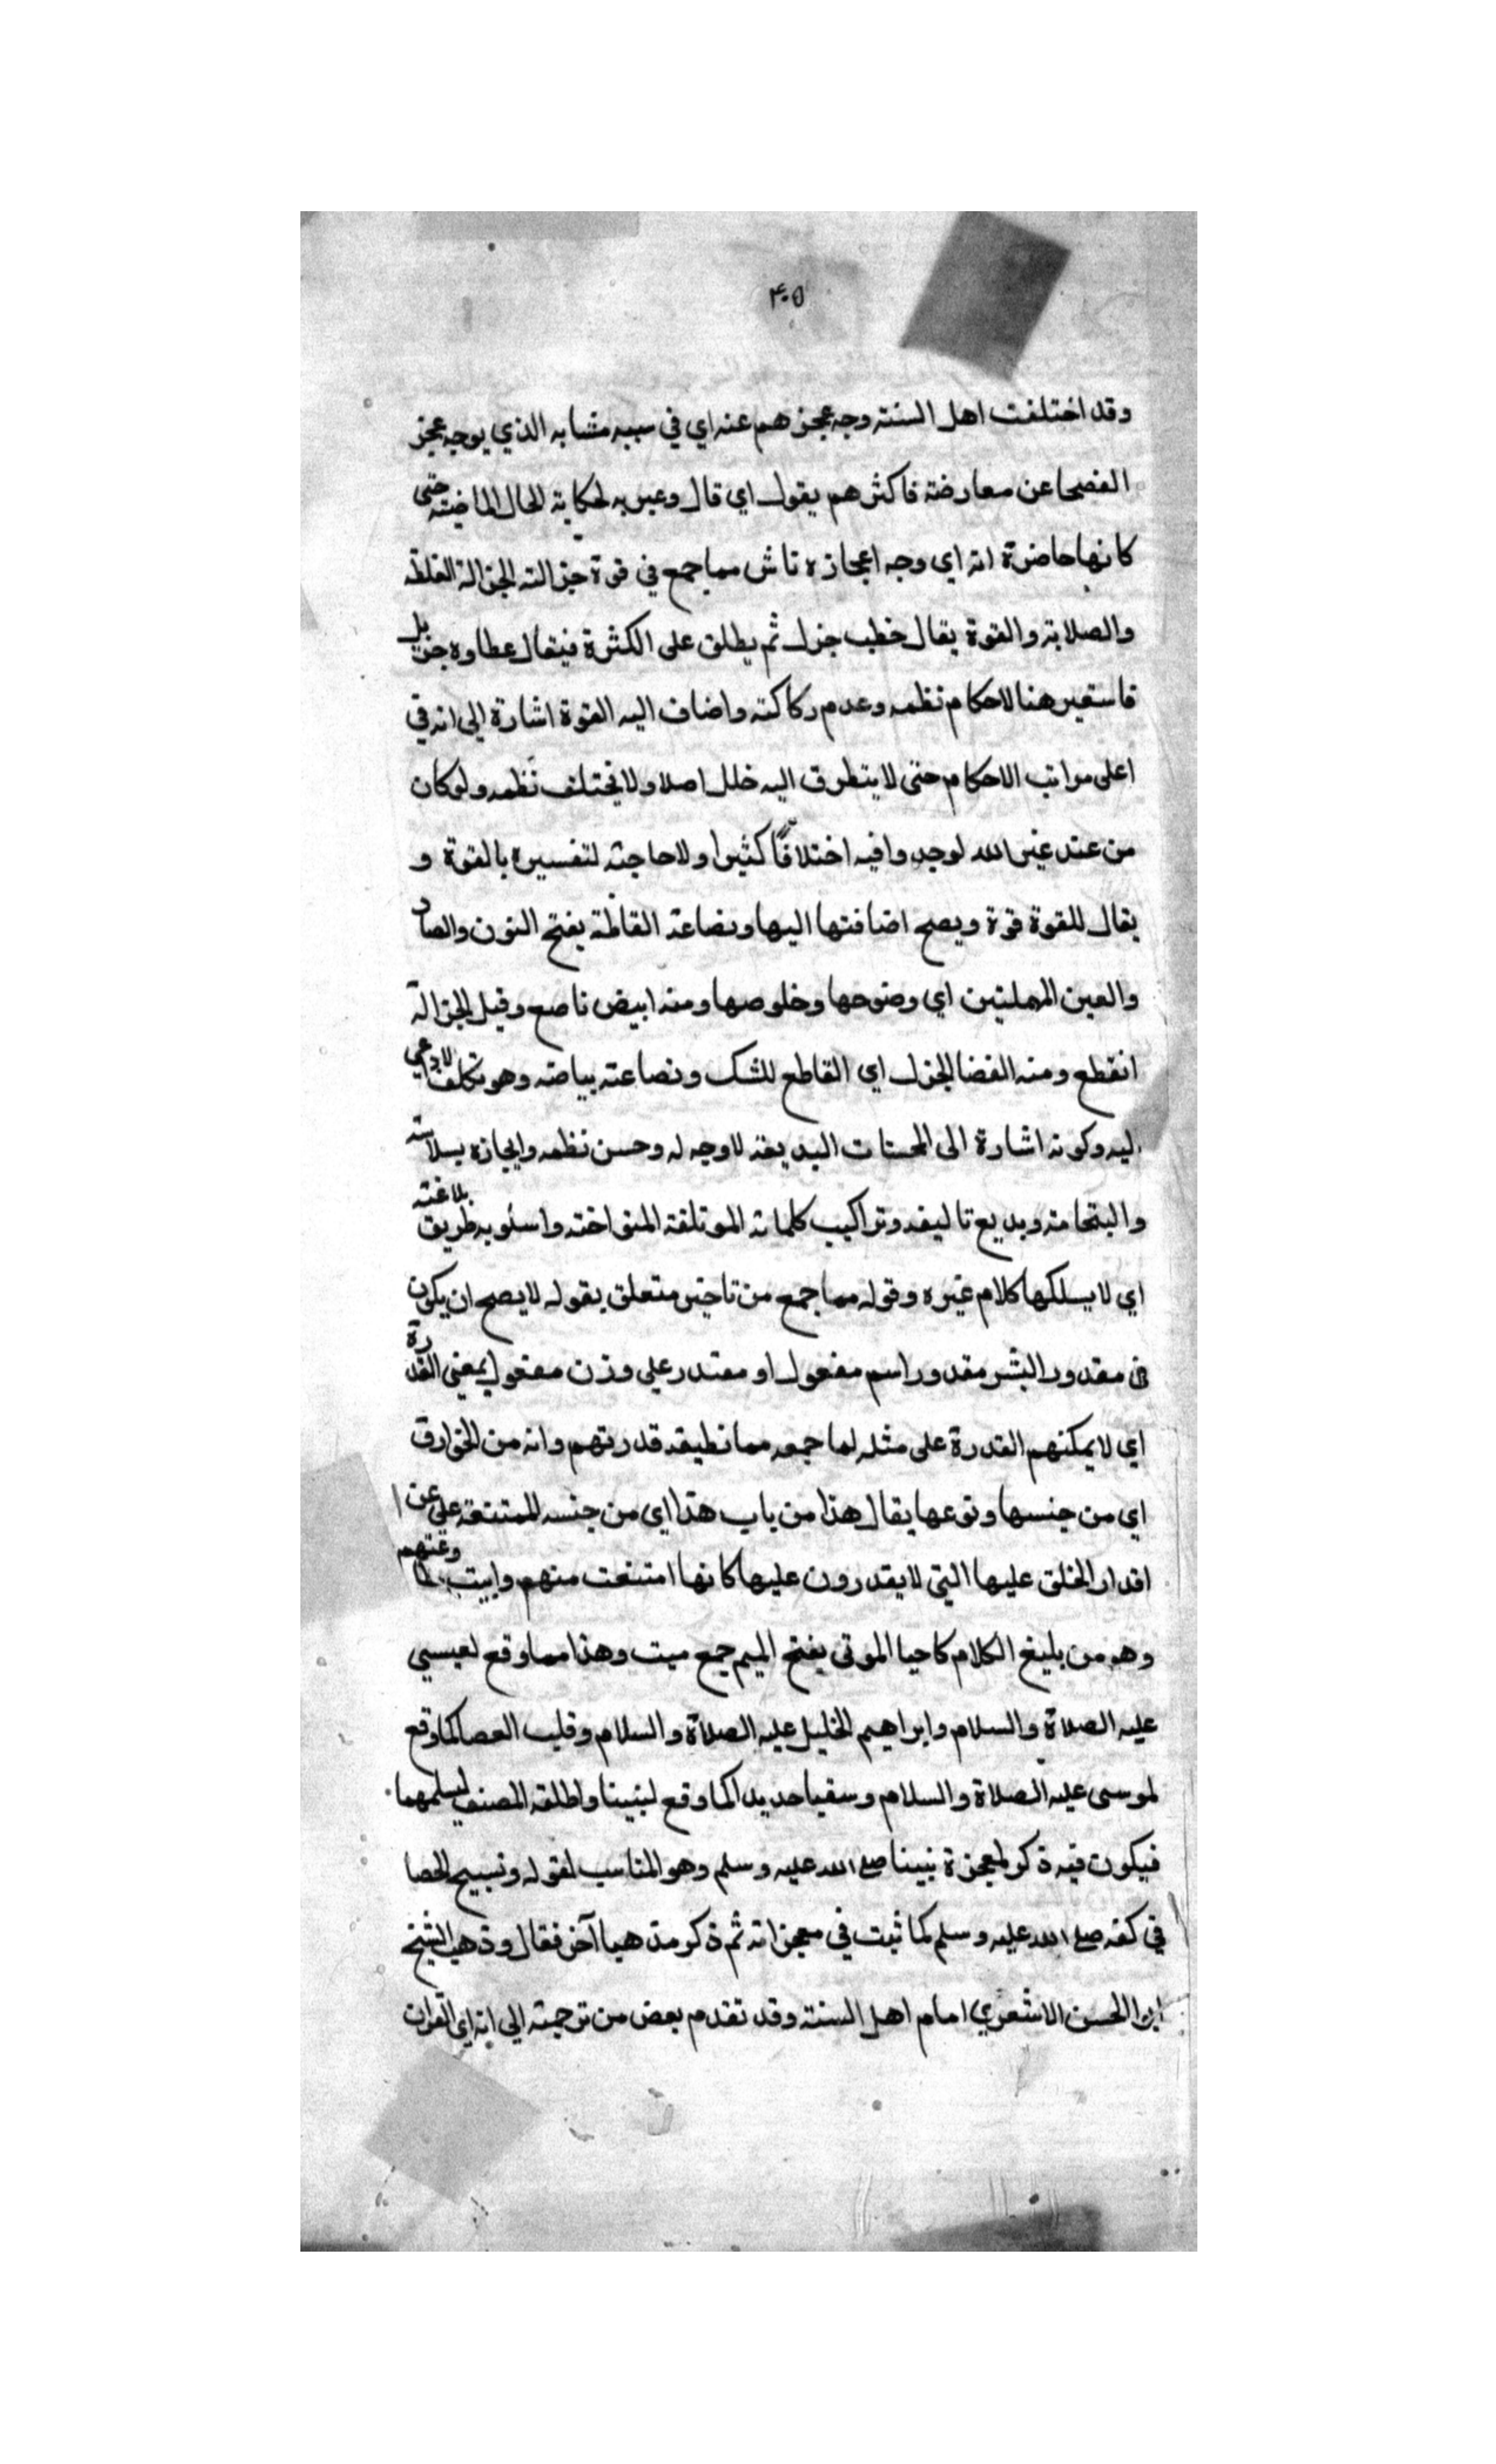 ٤٠٥
وقد اختلفت اهل السنة وجه عجزهم عنه اي في سببه مشابه الذي يوجه عجز
الفصحا عن معارضته فاكثرهم يقول اي قال وعبر به لحكاية الحال الماضية حتى
كانها حاضرة انه اي وجه اعجازه ناش مما جمع في قوة جزالته الجزالة الغلظة
والصلابة والقوة يقال خطب جزل ثم يطلق على الكثرة فيقال عطاوه جزيل
فاستعير هنا لاحكام نظمه وعدم ركاكته واضاف اليه القوة اشارة الى انه في
اعلى مراتب الاحكام حتى لا يتطرق اليه خلل اصلا ولا يختلف نظمه ولو كان
من عند غير الله لوجدوا فيه اختلافًا كثيرا ولا حاجة لتفسيره بالقوة و
يقال للقوة قوة ويصح اضافتها اليها ونصاعة الفاظه بفتح النون والصاد
والعين المهملتين اي وضوحها وخلوصها ومنه ابيض ناصع وقيل الجزالة
انقطع ومنه القضا الجزل اي القاطع للشك ونصاعته بياضه وهو تكلف لا داعي
اليه وكونه اشارة الى المحسنات البديعة لا وجه له وحسن نظمه وايجازه بسلاسته
والتحامه وبديع تاليفه وتراكيب كلماته الموتلفة المتواخة واسلوبه طريق بلاغته
اي لا يسلكها كلام غيره وقوله مما جمع من تاخير متعلق بقوله لا يصح ان يكون
في مقدور البشر مقدور اسم مفعول او مقتدر على وزن مفعول بمعنى القدرة
اي لا يمكنهم القدرة على مثله لما جمعه مما نطيقه قدرتهم وانه من الخوارق
اي من جنسها ونوعها يقال هذا من باب هذا اي من جنسه الممتنعة على عن
اقدار الخلق عليها التي لا يقدرون عليها كانها امتنعت منهم وابيت وعنهم
وهو من بليغ الكلام كاحيا الموتى بفتح الميم جمع ميت وهذا مما وقع لعيسى
عليه الصلاة والسلام وابراهيم الخليل عليه الصلاة والسلام وقلب العصا كما وقع
لموسى عليه الصلاة والسلام وسقيا حديد كما وقع لنبينا واطلقه المصنف
فيكون فيه ذكر لمعجزة نبينا صلى الله عليه وسلم وهو المناسب لقوله وتسبيح الحصا
في كفه صلى الله عليه وسلم كما ثبت في معجزاته ثم ذكر مذهبا آخر فقال وذهب الشيخ
ابو الحسن الاشعري امام اهل السنة وقد تقدم بعض من ترجمته الى انه اي القران